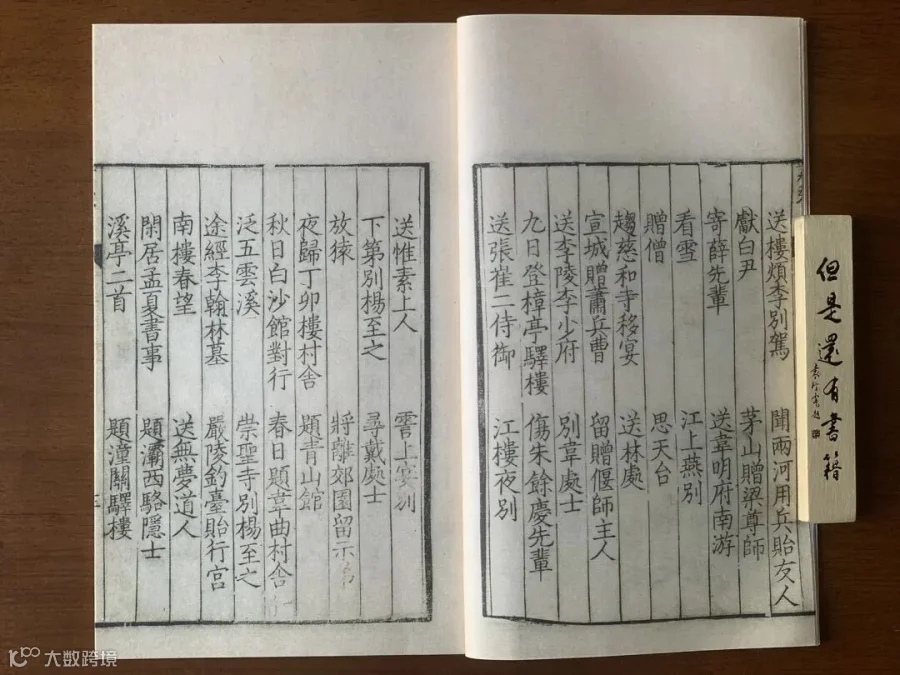 送樓煩李別駕 聞兩河用兵貽友人
獻白尹 茅山贈梁尊師
寄薛先輩 送韋明府南游
看雪 江上燕別
贈僧 思天台
趨慈和寺移宴 送林處
宣城贈蕭兵曹 留贈偃師主人
送李陵李少府 別韋處士
九日登樟亭驛樓 傷朱餘慶先輩
送張崔二侍御 江樓夜別
送惟素上人 霅上宴別
下第別楊至之 尋戴處士
放猿 將離郊園留示
夜歸丁卯樓村舍 題青山館
秋日白沙館對行 春日題韋曲村舍
泛五雲溪 崇聖寺別楊至之
途經李翰林墓 嚴陵釣臺貽行宮
南樓春望 送無夢道人
閑居孟夏書事 題灞西駱隱士
溪亭二首 題潼關驛樓
但是還有書籍
大数跨境